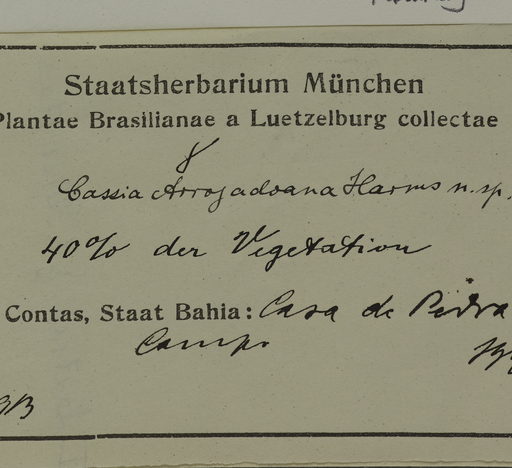 Staatsherbarium München
Plantae Brasilianae a Luetzelburg collectae
Cassia Arrojadoana Harms n. sp.
40% der Vegetation
Contas, Staat Bahia: Casa de Pedra
Campo